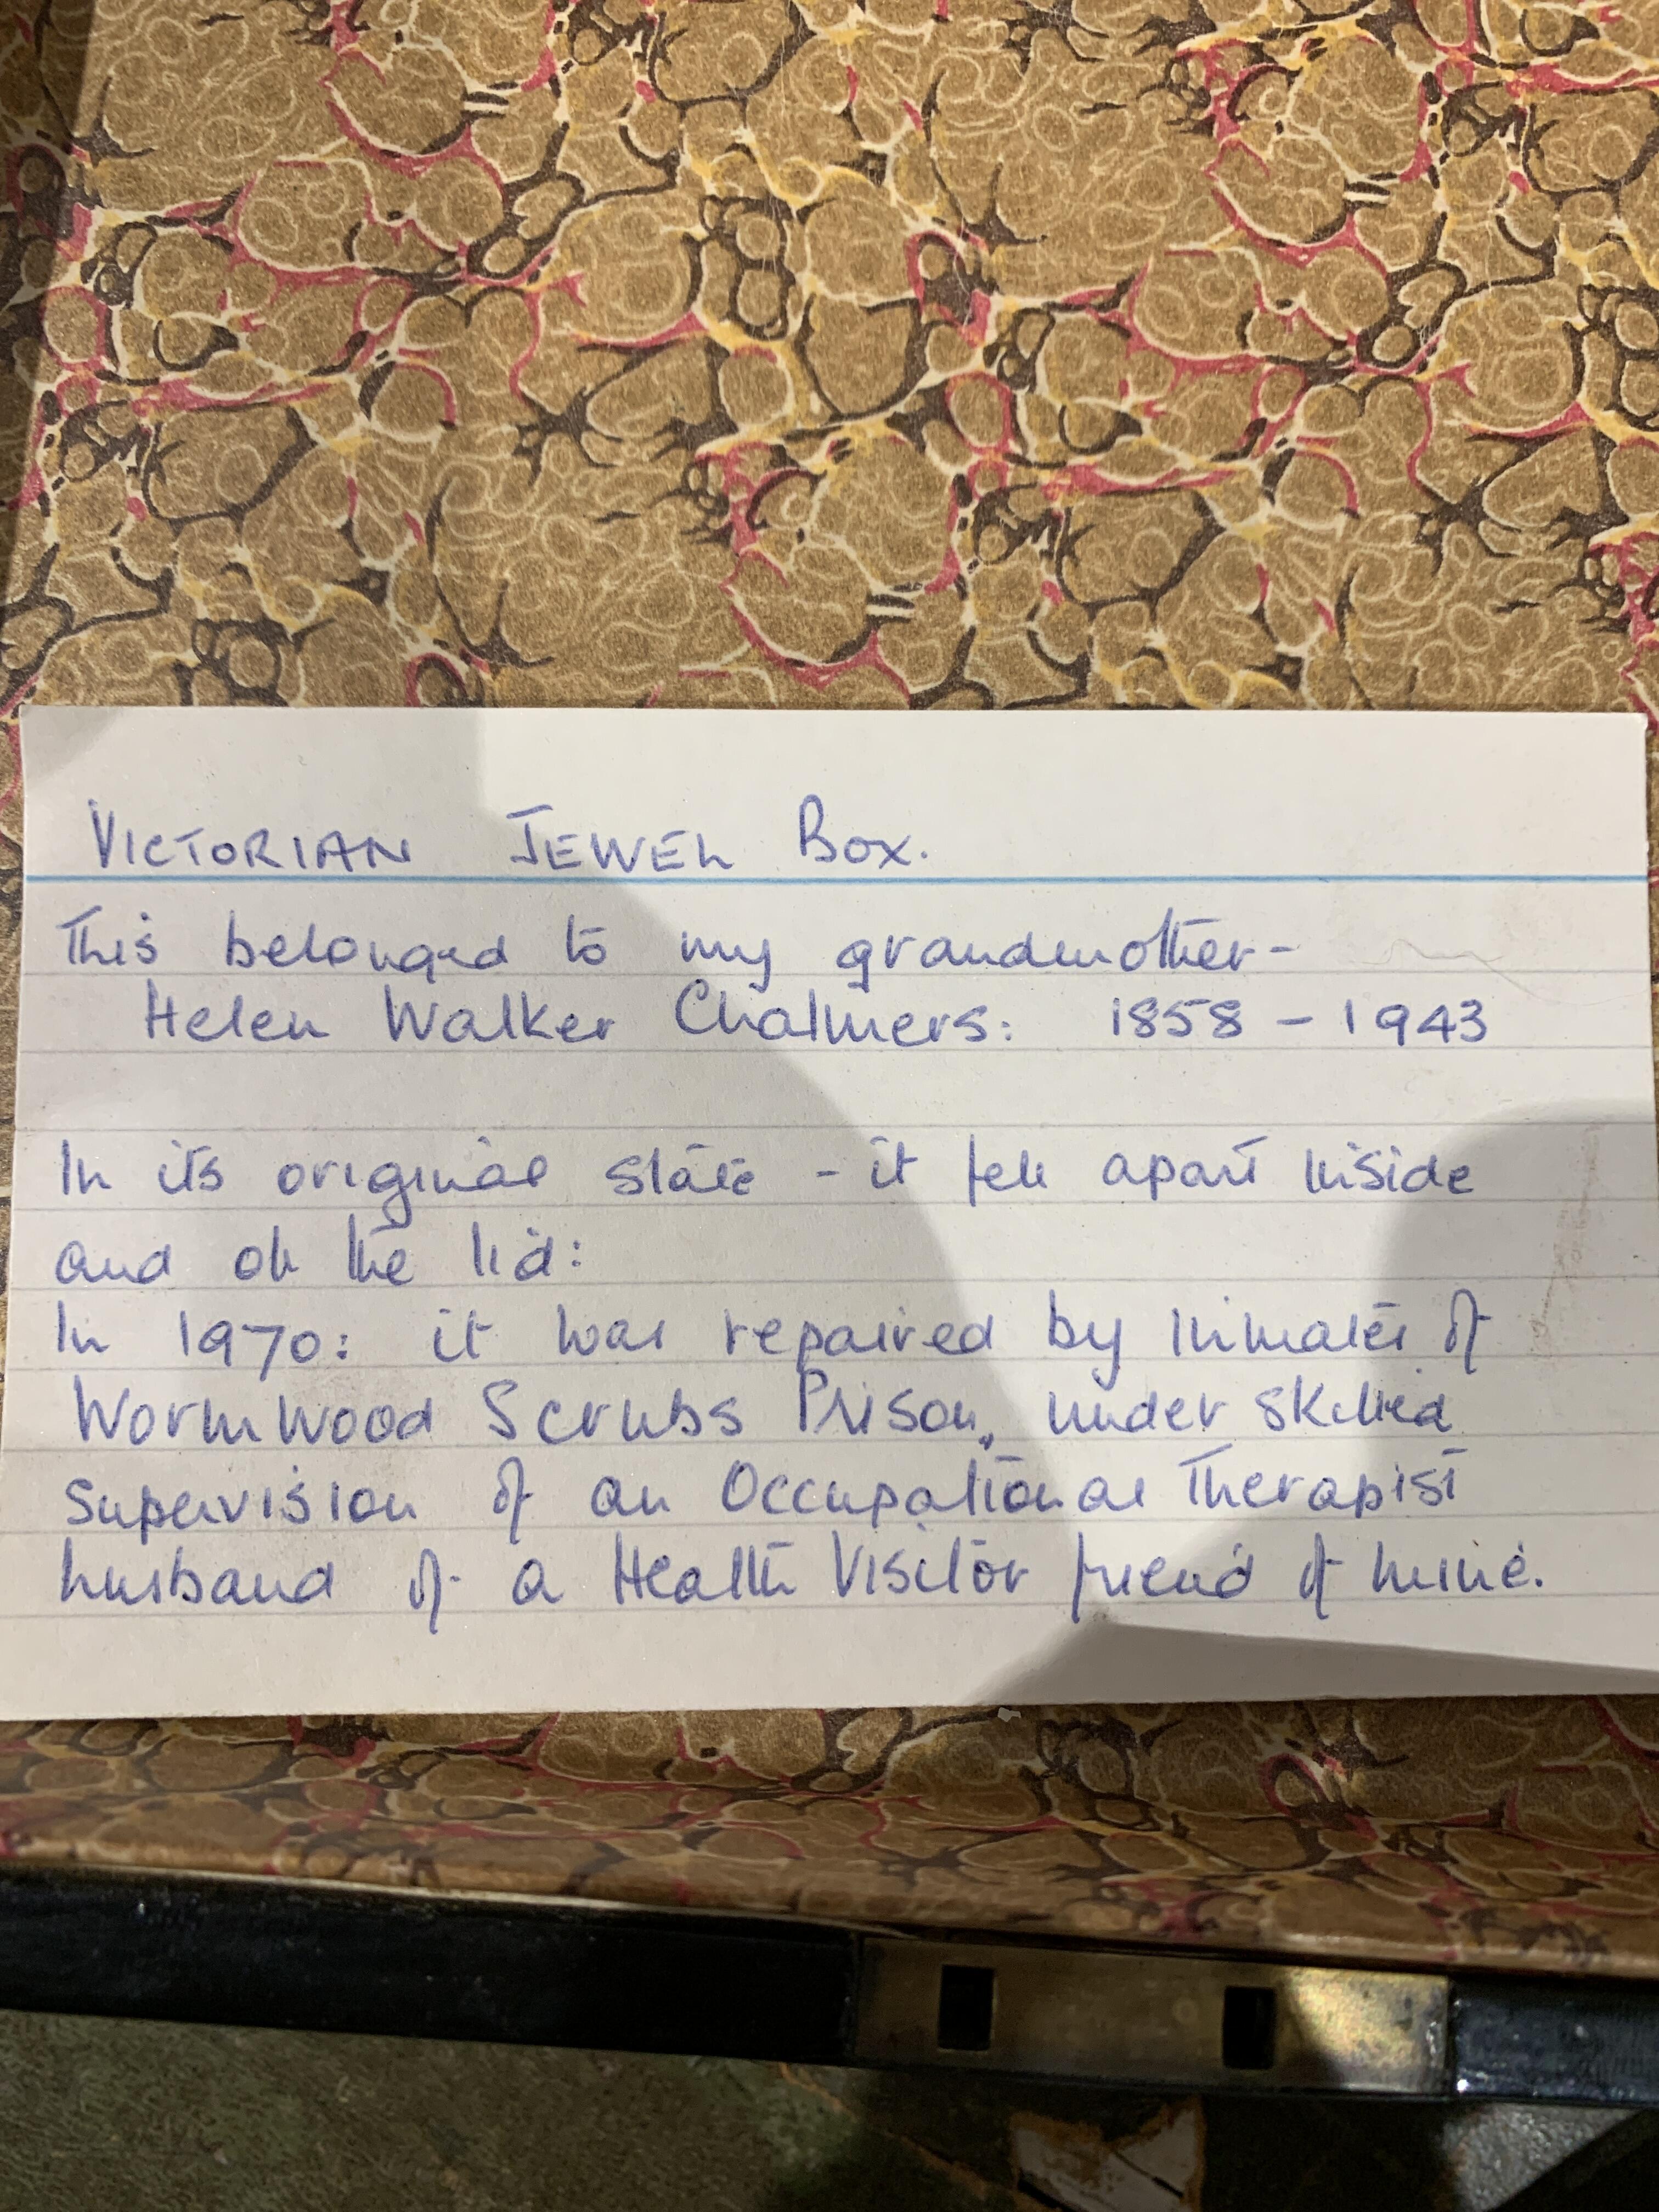 VICTORIAN JEWEL BOX.
This belonged to my grandmother-
Helen Walker Chalmers: 1858 - 1943
In its original state - it fell apart inside
and on the lid:
In 1970: it was repaired by Inmates of
Wormwood Scrubs Prison, under skilled
supervision of an Occupational Therapist
husband of a Health Visitor friend of mine.